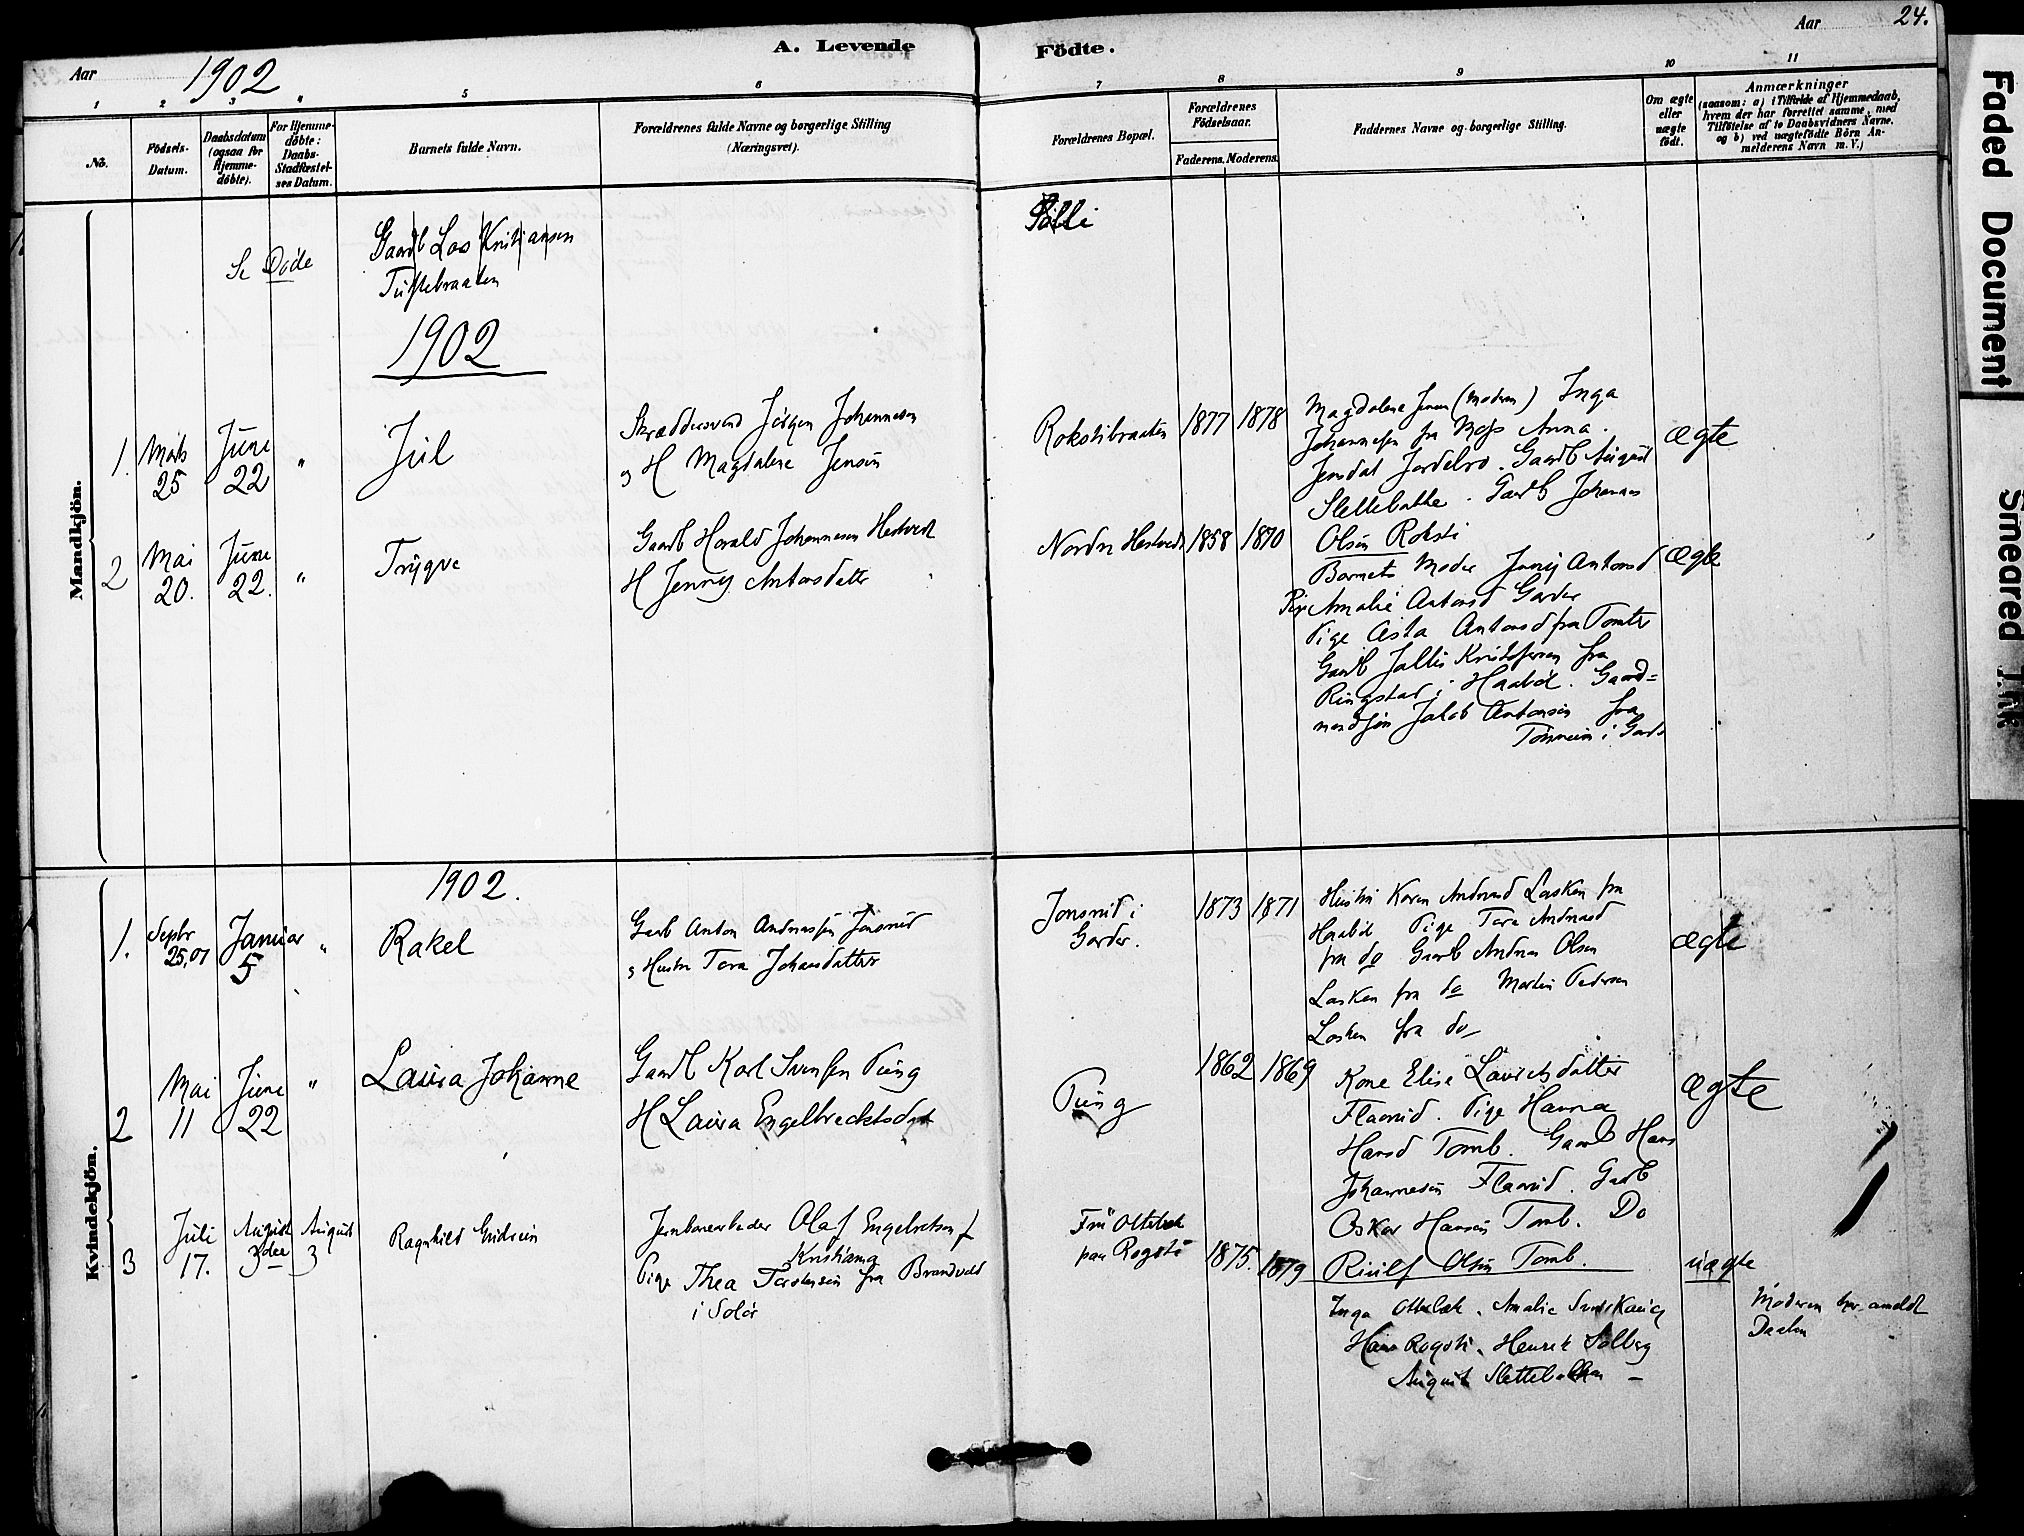 Aar 1902
A. Levende Födte.
Aar 24.
1 2 3 4 5 6 7 8 9 10 11
No.
Födsels-Datum.
Daabsdatum (ogsaa for Hjemme-döbte).
For Hjemme-döbte: Daabs-Stadfæstel-ses Datum.
Barnets fulde Navn.
Forældrenes fulde Navne og borgerlige Stilling (Næringsvei).
Forældrenes Bopæl.
Forældrenes Födselsaar.
Faderens. Moderens.
Faddernes Navne og borgerlige Stilling.
Om ægte eller uægte födt.
Anmærkninger
(saasom: a) i Tilfælde af Hjemmedaab,
hvem der har forrettet samme, med
Tilföielse af to Daabsvidners Navne,
og b) ved uægtefödte Börn An-
melderens Navn m. V.)
Se Døde
Gaardb Lars Kristiansen
Tuftebraaten
1902
Mandkjön.
1. Marts 25 Juni 22 "
Jul
Skræddersvend Jörgen Johannesen
og H Magdalene Jensen
Rokstibraaten 1877 1878
Magdalene Jensen (Moderen) Inga
Johannesen fra Moss Anna
Jensdat Jordebro. Gaardb August
Slettebakke. Gaardb Johannes
Olsen Roksti
ægte
2 Mai 20. Juni 22. "
Trygve
Gaardb Harald Johannesen Hestvedt
H Jenny Antonsdatter
Nordre Hestvedt 1858 1870
Barnets Moder Jenny Antonsd
Pige Amalie Antonsd Garder
Pige Asta Antonsd fra Tomter
Gaardb Julius Kristofersen fra
Ringstad i Haabøl. Gaard=
mandssøn Jakob Antonsen fra
i Gard
ægte
Kvindekjön.
1902.
1. Septbr 25,01 Januar 5 "
Rakel
Gaardb Anton Andreassen Jonsrud
og Hustru Tora Johansdatter
Jonsrud i
Garder.
1873 1871
Hustru Karen Andreasd Lasken fra
Haabøl Pige Tora Andreasd
fra do Gaardb Andreas Olsen
Lasken fra do Martin Pedersen
Lasken fra do
ægte
2 Mai 11 Juni 22 "
Laura Johanne
Gaardb Karl Svensen Pung
H Laura Engelbrechtsdat
Pung
1862 1869
Kone Elise Lauritsdatter
Flaarud. Pige Hanna
Hansd Tomb. Gaardb Hans
Johannesen Flaarud. Gaardb
Oskar Hansen Tomb. Do
Rinilf Olsen Tomb.
ægte
3 Juli 17. August 3die August 3
Ragnhild Gudrun
Jernbanearbeider Olaf Engebretsen f
Kristiania
Pige Thea Torstensen fra Brandvold
i Solør
Fru Ottebæk
paa Rogsti
1875. 1879
Inga Ottebæk. Amalie
Hans Rogsti. Henrik Solberg
August Slettebakken
uægte
Moderen har anmeldt
Daaben
Faded Document
Smeared Ink